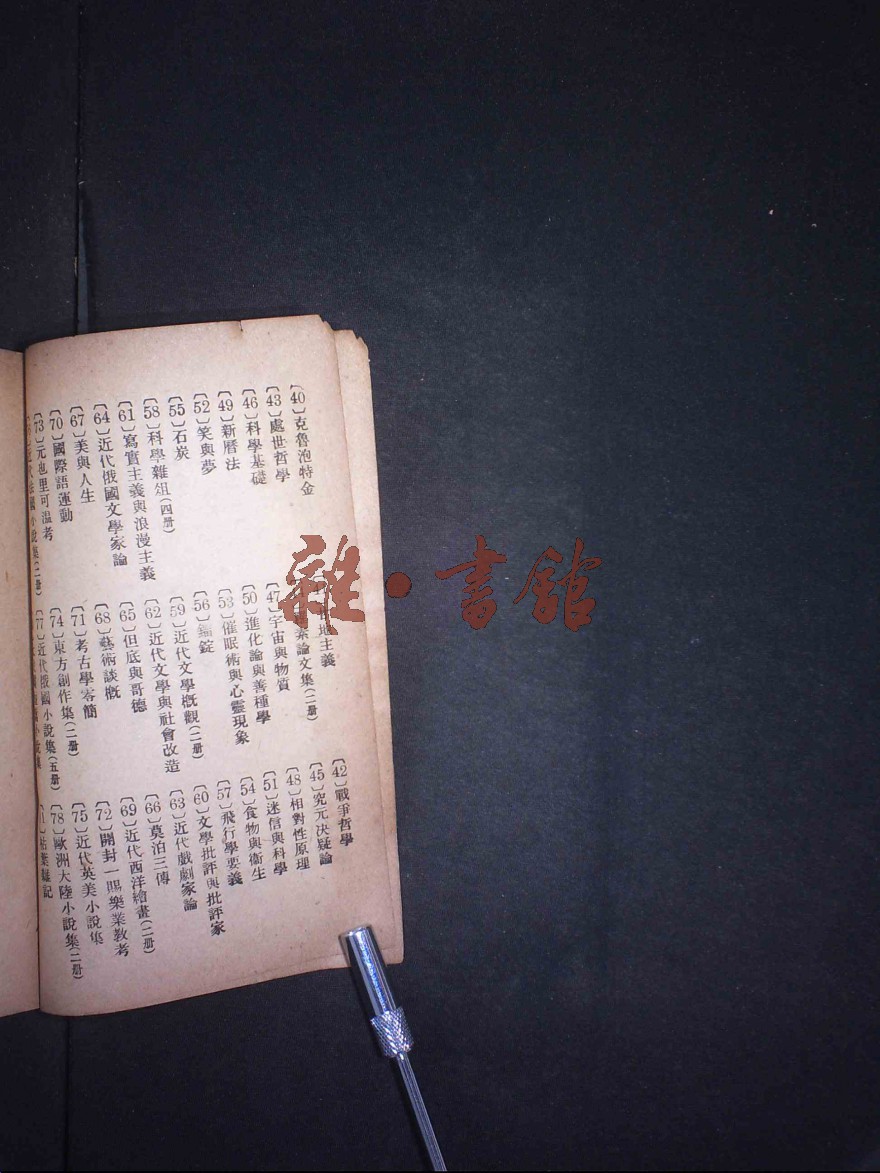 〔40〕克魯泡特金 主義 〔42〕戰爭哲學
〔43〕處世哲學 論文集(二册) 〔45〕究元決疑論
〔46〕科學基礎 〔47〕宇宙與物質 〔48〕相對性原理
〔49〕新曆法 〔50〕進化論與善種學 〔51〕迷信與科學
〔52〕笑與夢 〔53〕催眠術與心靈現象 〔54〕食物與衞生
〔55〕石炭 〔56〕鐳錠 〔57〕飛行學要義
〔58〕科學雜俎(四册) 〔59〕近代文學概觀(二册) 〔60〕文學批評與批評家
〔61〕寫實主義與浪漫主義 〔62〕近代文學與社會改造 〔63〕近代戲劇家論
〔64〕近代俄國文學家論 〔65〕但底與哥德 〔66〕莫泊三傳
〔67〕美與人生 〔68〕藝術談概 〔69〕近代西洋繪畫(二册)
〔70〕國際語運動 〔71〕考古學零簡 〔72〕開封一賜樂業教考
〔73〕元也里可温考 〔74〕東方創作集(二册) 〔75〕近代英美小說集
法國小說集(二册) 〔77〕近代俄國小說集(五册) 〔78〕歐洲大陸小說集(二册)
小說集 枯葉雜記
雜·書館